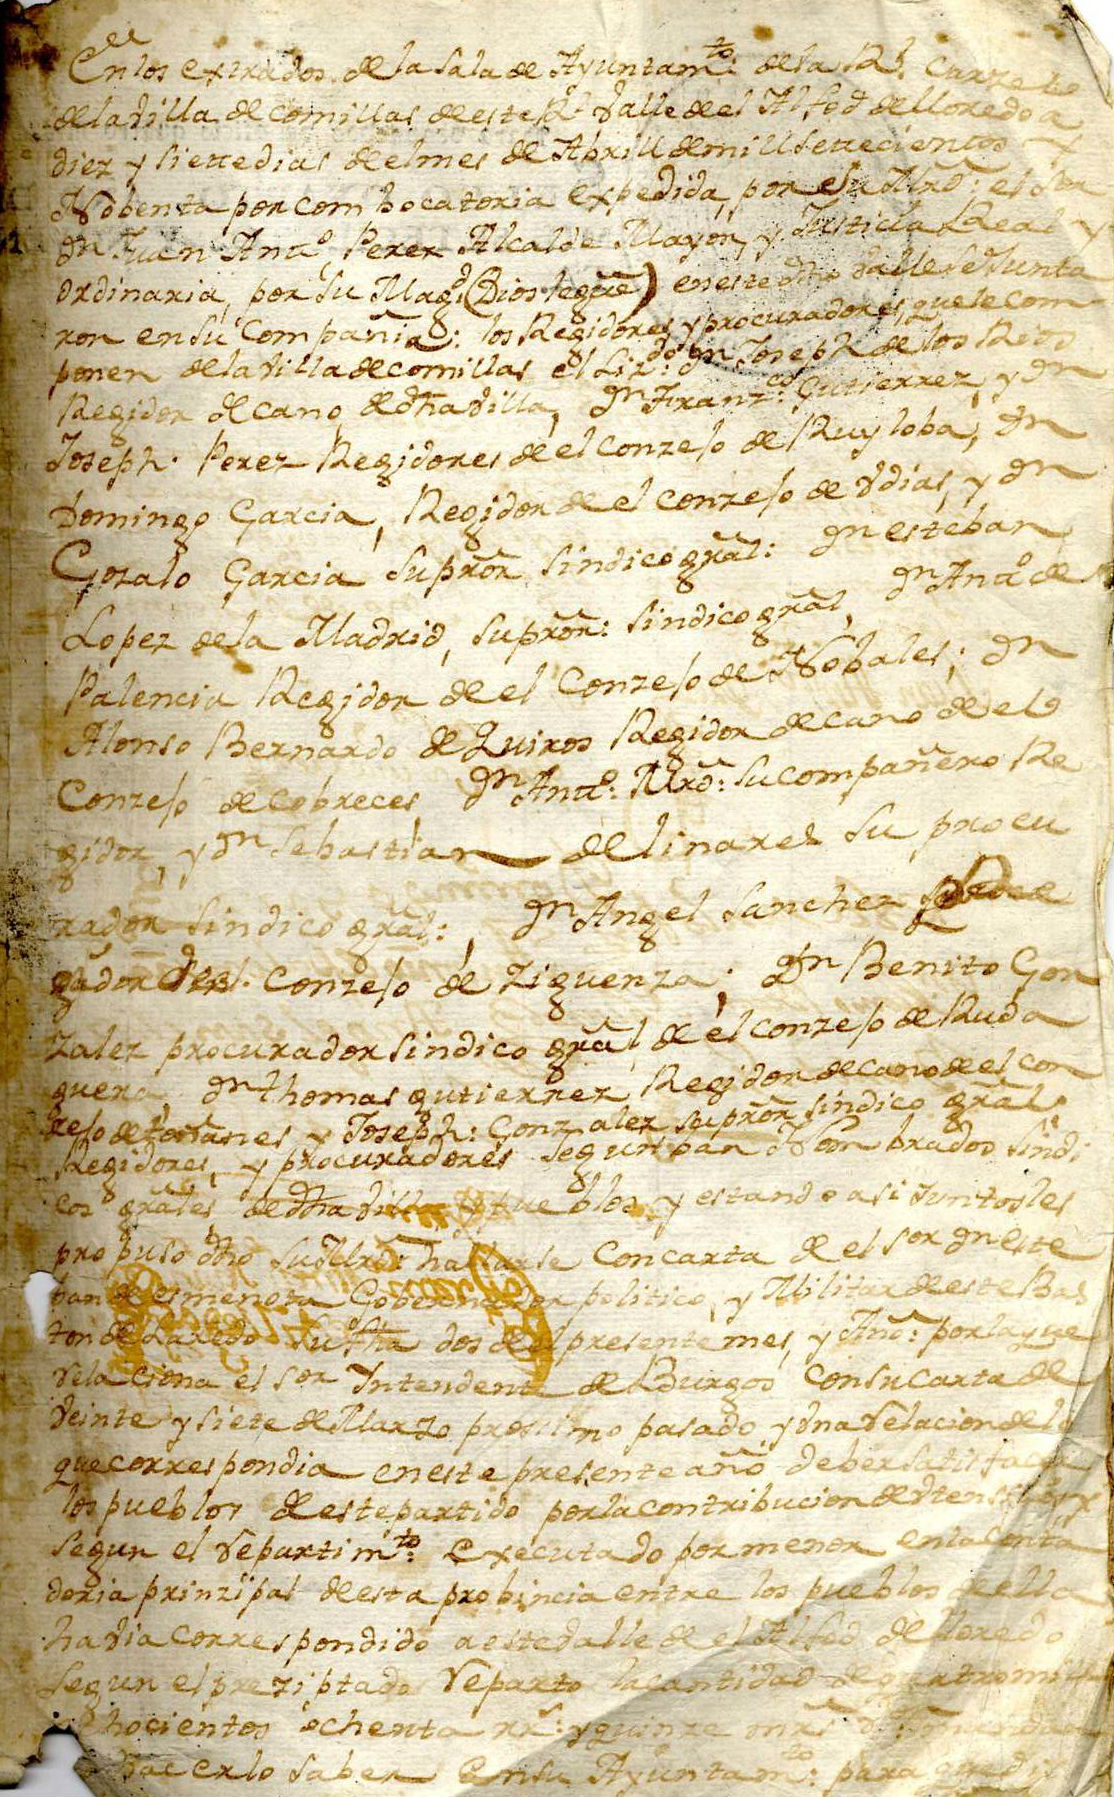 En los extrados de la sala de Ayuntam.to de la Rl. Carzel
de la Villa de Comillas de este Rl Valle de el Alfoz de lloredo a
diez y siette dias de el mes de Abrill de mill settecientos y
Nobenta por combocatoria expedida, por su Mrd: el Sor
Dn Juan Anto. Perez Alcalde Mayor, y Justicia Real y
ordinaria, por su Magd (Dios le gue) en este dho Valle se Junta
ron en su Compañia: los Regidores y procuradores, que le com
ponen de la Villa de comillas el Liz.do Dn Joseph de los Rios
Regidor decano, de dha Villa, Dn Franz.co Gutierrez, y Dn
Joseph. Perez Regidores de el Conzejo de Ruyloba, Dn
Domingo Garcia, Regidor de el Conzejo de Vdias, y Dn
Gozalo Garcia su pror sindico gral: Dn esteban
Lopez de la Madrid, su pror: sindico gral, Dn Anto de
Palencia Regidor de el Conzejo de Nobales; Dn
Alonso Bernardo de Quiros Regidor decano de el
Conzejo de Cobreces, Dn Anto: Mrd: su compañero Re
gidor, y Dn Sebastian de linares su procu
rador sindico gral:, Dn Angel Sanchez
gador del. Conzejo de Ziguenza; Dn Benito Gon
zalez procurador sindico gral de el conzejo de Ruda
guera Dn thomas gutierrez Regidor decano de el con
zejo de toñanes y Joseph: Gonzalez su pror sindico gral
Regidores, y procuradores segun ban Nombrados sindi
cos grales de dha Villa y pueblos, y estando asi Juntos les
propuso dho su Mrd: hallarse Con carta de el sor Dn este
ban de esmenota Gobernador politico, y Militar de este Bas
ton de Laredo su fha dos de el presente mes, y Año: por la que
relaciona el sor Intendente de Burgos con su carta de
veinte y siete de Marzo prossimo pasado y una relacion de lo
que correspondia en este presente año, deber satisfacer
los pueblos de este partido por la contribucion de Vtensilios
segun el repartim.to executado por menor en la Conta
doria prinzipal de esta probincia entre los pueblos de ella
havia correspondido a este Valle de el Alfoz de lloredo
segun el preziptado reparto la cantidad de quatro mill
ochocientos ochenta rrs: y quinze mrs
hacerlo saber en su Ayuntam.to: para